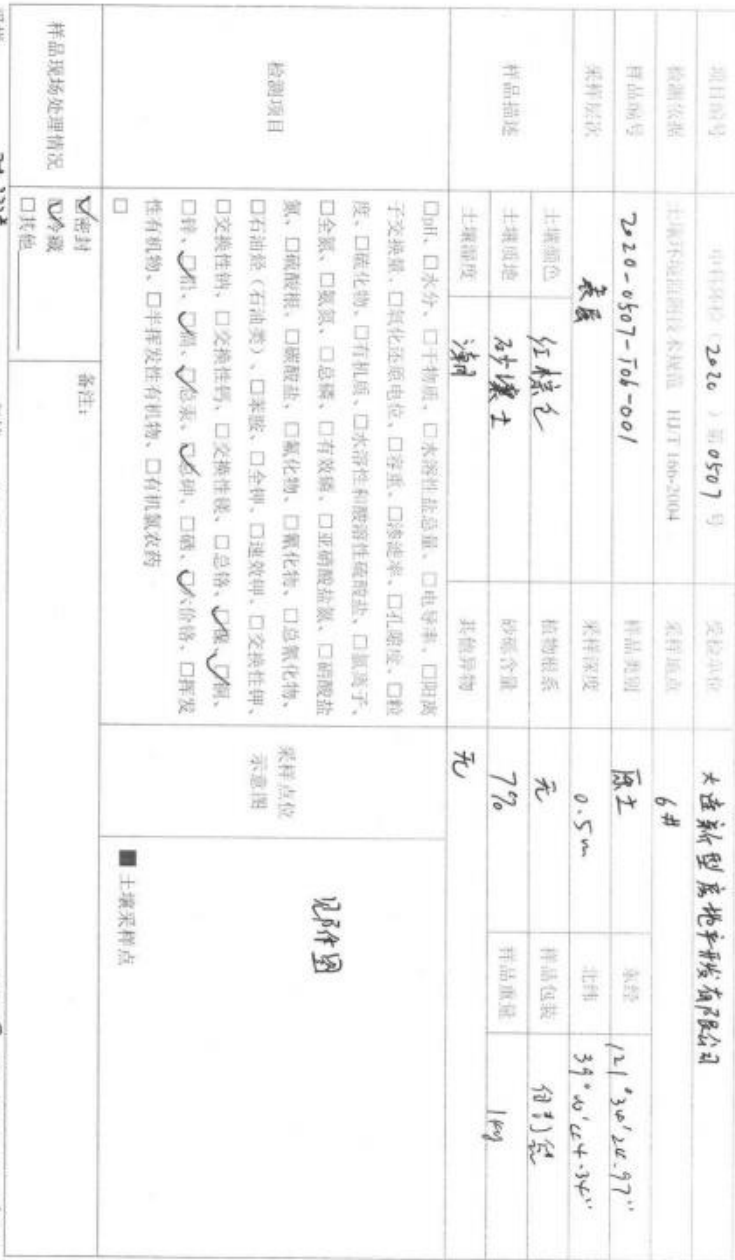 项目编号 中科环检（2020）第0507号 受检单位 大连新型房地产开发有限公司
检测依据 土壤环境监测技术规范 HJ/T 166-2004 采样地点 6#
样品编号 2020-0507-T06-001 样品类别 原土 东经
采样层次 表层 采样深度 0.5m 北纬
样品描述 土壤颜色 红棕色 植物根系 无 样品包装
土壤质地 砂壤土 砂砾含量 7% 样品重量 1kg
土壤湿度 潮 其他异物 无
检测项目
□pH、□水分、□干物质、□水溶性盐总量、□电导率、□阳离
子交换量、□氧化还原电位、□容重、□渗滤率、□孔隙度、□粒
度、□硫化物、□有机质、□水溶性和酸溶性硫酸盐、□氯离子、
□全氮、□氨氮、□总磷、□有效磷、□亚硝酸盐氮、□硝酸盐
氮、□硫酸根、□碳酸盐、□氟化物、□氰化物、□总氰化物、
□石油烃（石油类）、□苯胺、□全钾、□速效钾、□交换性钾、
□交换性钠、□交换性钙、□交换性镁、□总铬、☑镍、☑铜、
□锌、☑铅、☑镉、☑总汞、☑总砷、□硒、☑六价铬、□挥发
性有机物、□半挥发性有机物、□有机氯农药
□
采样点位
示意图
见附件图
■土壤采样点
样品现场处理情况
☑密封
☑冷藏
□其他
备注：